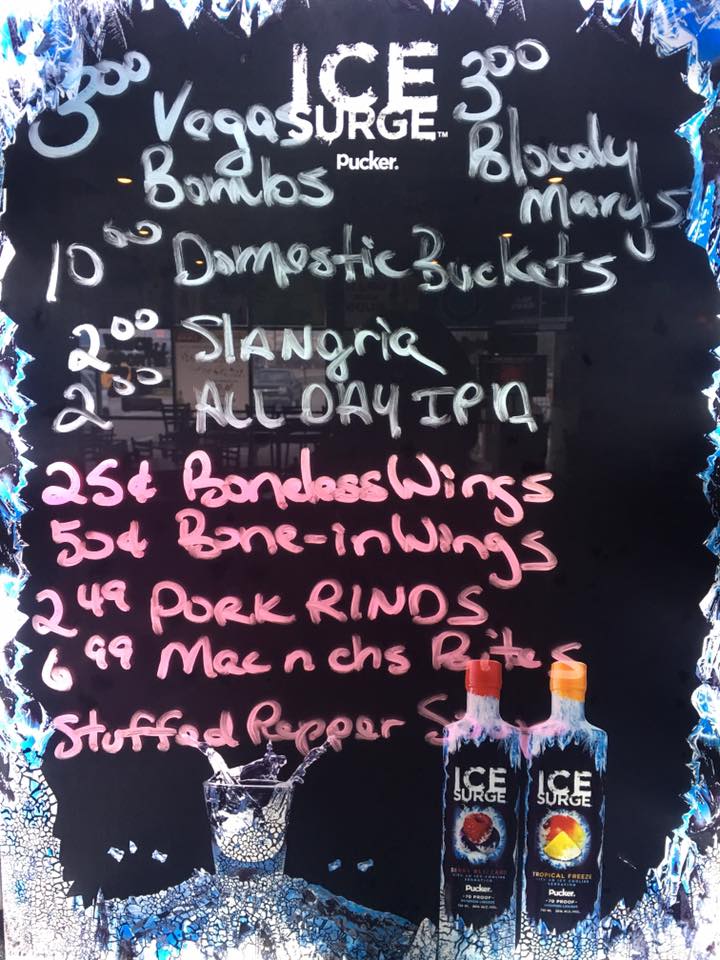 ICE
SURGE™
Pucker.
3⁰⁰ Vegas
Bombs
3⁰⁰
Bloody
Marys
10⁰⁰ Domestic Buckets
2⁰⁰ SLANgria
2⁰⁰ ALL DAY IPA
25¢ Boneless Wings
50¢ Bone-in Wings
2⁴⁹ PORK RINDS
6⁹⁹ Mac n chs Bites
Stuffed Pepper
ICE
SURGE
Pucker.
70 PROOF
ICE
SURGE
TROPICAL FREEZE
Pucker.
70 PROOF